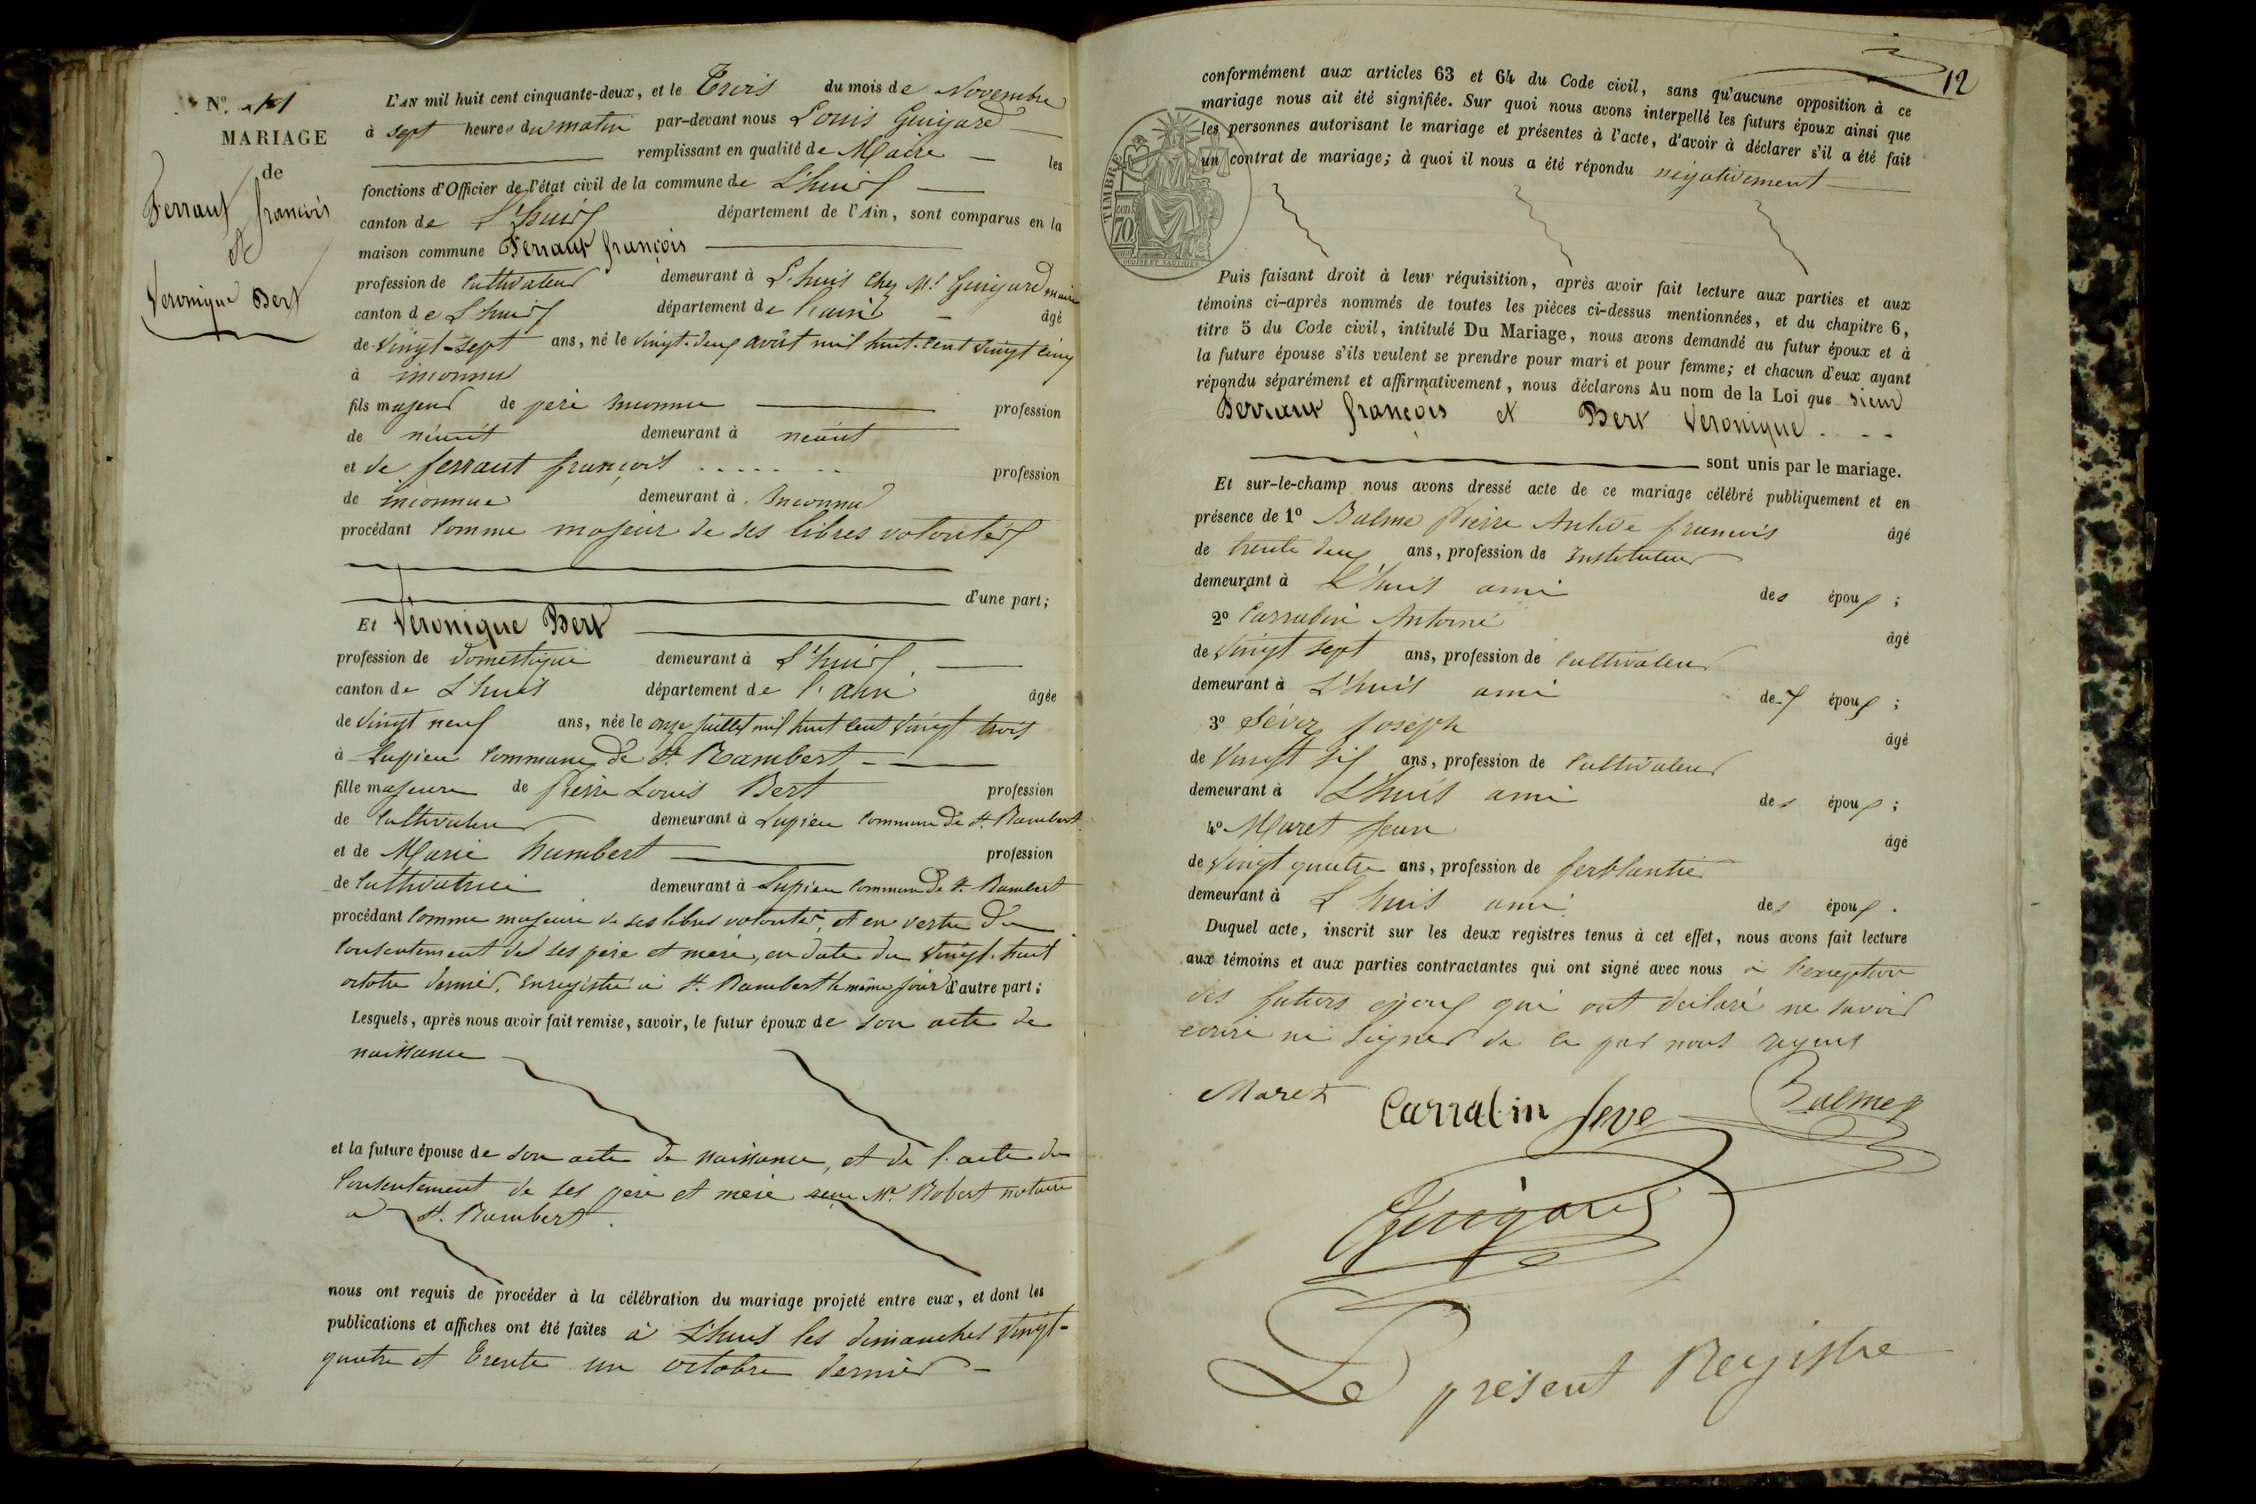 N.° 11
MARIAGE
de
Ferraut françois
et
Veronique Bert
L'AN mil huit cent cinquante-deux, et le Trois du mois de Novembre
à sept heures du matin par-devant nous Louis Guigard
remplissant en qualité de Maire les
fonctions d'Officier de l'état civil de la commune de L'huis
canton de L'huis département de l'Ain, sont comparus en la
maison commune Ferraut françois
profession de Cultivateur demeurant à L'huis chez Mr Guigard maire
canton de L'huis département de l'ain âgé
de vingt-sept ans, né le vingt-deux avût mil huit-cent vingt cinq
à inconnu
fils majeur de père Inconnu profession
de néant demeurant à néant
et de ferraut françois profession
de inconnue demeurant à Inconnu
procédant comme majeur de ses libres volontés
d'une part;
Et Véronique Bert
profession de domestique demeurant à L'huis
canton de L'huis département de l'ain âgée
de vingt neuf ans, née le onze juillet mil huit cent vingt trois
à Lupieu commune de St. Rambert
fille majeure de pierre Louis Bert profession
de Cultivateur demeurant à Lupieu commune de St. Rambert
et de Marie humbert profession
de Cultivatrice demeurant à Lupieu commune de St. Rambert
procédant comme majeure de ses libres volontés, et en vertu du
consentement de ses père et mère, en date du vingt-huit
octobre dernier, enregistré à St. Rambert le même jour d'autre part;
Lesquels, après nous avoir fait remise, savoir, le futur époux de son acte de
naissance
et la future épouse de son acte de naissance, et de l'acte du
consentement de ses père et mère Mr. Robert notaire
à St. Rambert.
nous ont requis de procéder à la célébration du mariage projeté entre eux, et dont les
publications et affiches ont été faites à L'huis les dimanches vingt-
quatre et trente un octobre dernier
12
conformément aux articles 63 et 64 du Code civil, sans qu'aucune opposition à ce
mariage nous ait été signifiée. Sur quoi nous avons interpellé les futurs époux ainsi que
les personnes autorisant le mariage et présentes à l'acte, d'avoir à déclarer s'il a été fait
un contrat de mariage; à quoi il nous a été répondu négativement
TIMBRE
70 cent
Puis faisant droit à leur réquisition, après avoir fait lecture aux parties et aux
témoins ci-après nommés de toutes les pièces ci-dessus mentionnées, et du chapitre 6,
titre 5 du Code civil, intitulé Du Mariage, nous avons demandé au futur époux et à
la future épouse s'ils veulent se prendre pour mari et pour femme; et chacun d'eux ayant
répondu séparément et affirmativement, nous déclarons Au nom de la Loi que sieur
Ferraut françois et Bert Veronique
sont unis par le mariage.
Et sur-le-champ nous avons dressé acte de ce mariage célébré publiquement et en
présence de 1° Balme Pierre françois âgé
de trente deux ans, profession de Instituteur
demeurant à L'huis ami des époux ;
2° Carrabin Antoine âgé
de vingt sept ans, profession de Cultivateur
demeurant à L'huis ami des époux ;
3° Joseph âgé
de vingt six ans, profession de Cultivateur
demeurant à L'huis ami des époux ;
4° Maret Jean âgé
de vingt quatre ans, profession de ferblantier
demeurant à L'huis ami des époux .
Duquel acte, inscrit sur les deux registres tenus à cet effet, nous avons fait lecture
aux témoins et aux parties contractantes qui ont signé avec nous à l'exception
des futurs époux qui ont déclaré ne savoir
écrire ni signer de ce par nous requis
Maret Carrabin Seve Balme
Guigard
Le présent Registre